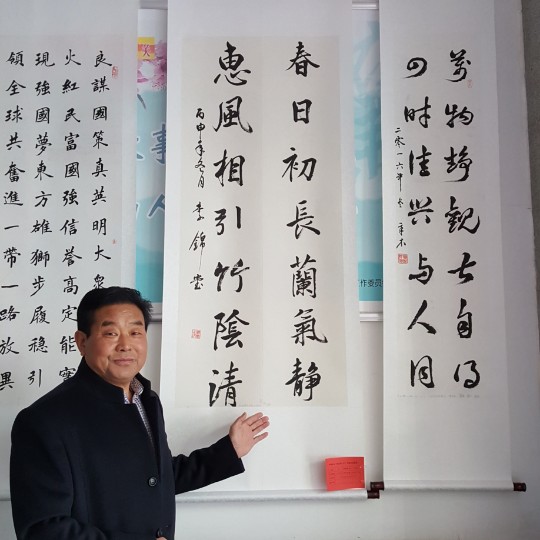 萬物静觀皆自得
四时佳興与人同
二零一六年冬
春日初長蘭氣静
惠風相引竹陰清
丙申年冬月 李錦堂
良謀國策真英明大
火紅民富國強信誉高定能實
現強國夢東方雄獅步履穩引
領全球共奮進一帶一路放異
事
人
作委员